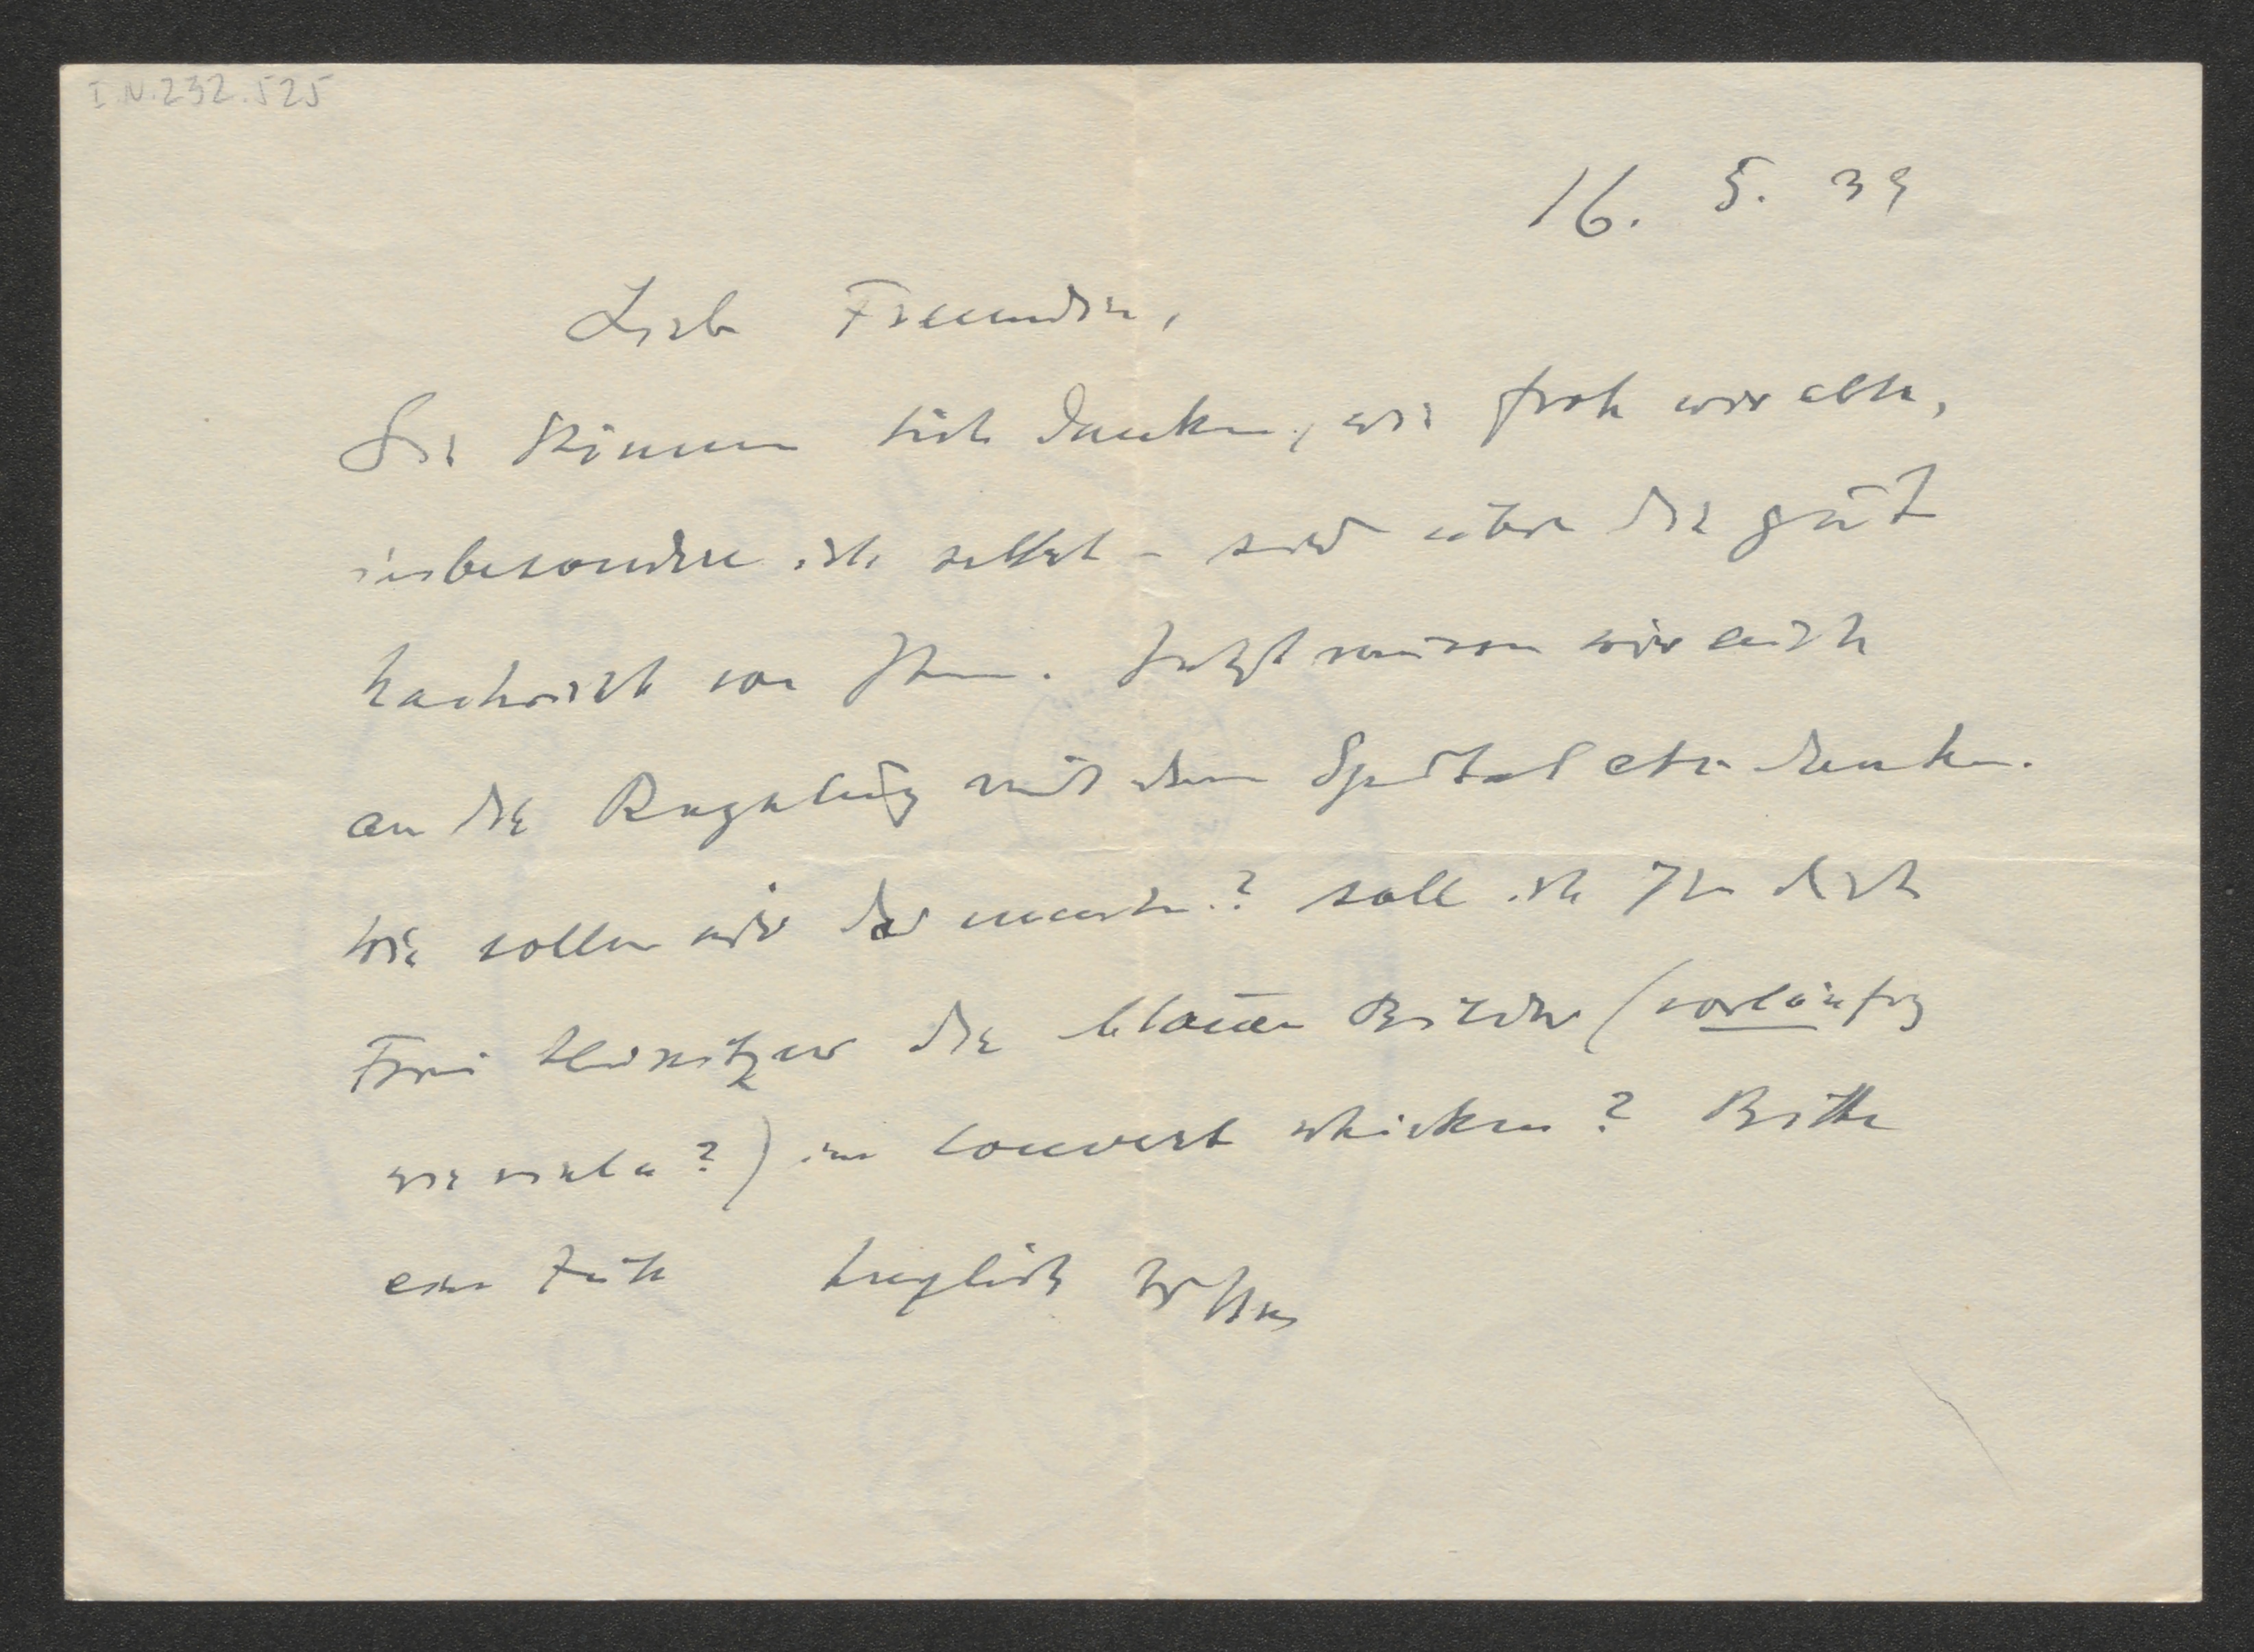 I.N.232.525
16. 5. 39
Liebe Freundin,
Sie können sich denken, wie froh wir alle,
insbesondere ich selbst - sind über die gute
Nachricht von Ihnen. Jetzt müssen wir auch
an die Regelung mit dem Spital etc. denken.
Wie sollen wir das machen? Soll ich Ihnen durch
Frau die blauen Bilder (vorläufig
wie viele?) im Couvert schicken? Bitte
eine Zeile herzlich